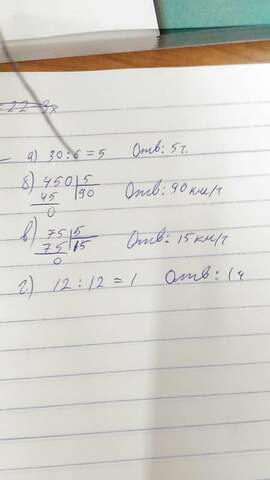 а) 30:6=5 Отв: 5ч.
б) 450|5 Отв: 90 км/ч
45 90
0
в) 75|5 Отв: 15 км/ч
75 15
0
г) 12:12=1 Отв: 1ч